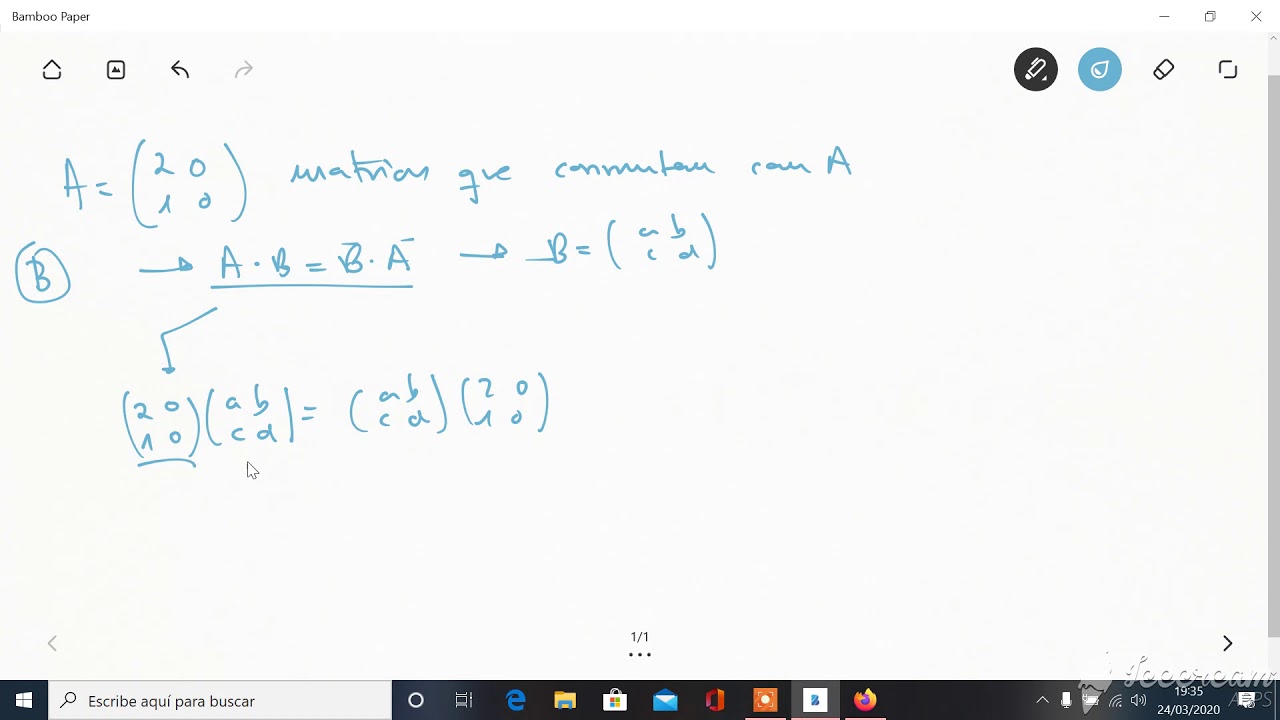 Bamboo Paper
A = (2 0 1 0) matrices que conmutan con A
B → A · B = B · A → B = (a b c d)
(2 0 1 0) (a b c d) = (a b c d) (2 0 1 0)
1/1
Escribe aquí para buscar
19:35
24/03/2020